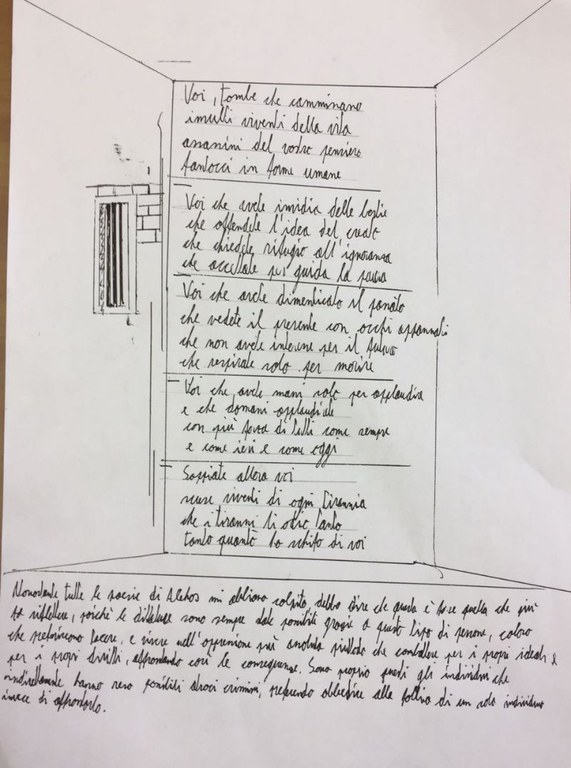 Voi, tombe che camminano
insulti viventi della vita
assassini del vostro pensiero
fantocci in forme umane
Voi che avete invidia delle bestie
che offendete l'idea del creato
che chiedete rifugio all'ignoranza
che accettate per guida la paura
Voi che avete dimenticato il passato
che vedete il presente con occhi appannati
che non avete interesse per il futuro
che respirate solo per morire
Voi che avete mani solo per applaudire
e che domani applaudirete
con più forza di tutti come sempre
e come ieri e come oggi
Sappiate allora voi
scuse viventi di ogni tirannia
che i tiranni li odio tanto
tanto quanto ho schifo di voi
Nonostante tutte le poesie di Alekos mi abbiano colpito, debbo dire che questa è forse quella che più
fa riflettere, poiché le dittature sono sempre state possibili grazie a questo tipo di persone, coloro
che preferiscono tacere e vivere nell'oppressione più assoluta piuttosto che combattere per i propri ideali e
per i propri diritti, affrontando così le conseguenze. Sono proprio questi gli individui che
indirettamente hanno reso possibili atroci crimini, preferendo obbedire alla follia di un solo individuo
invece di affrontarlo.